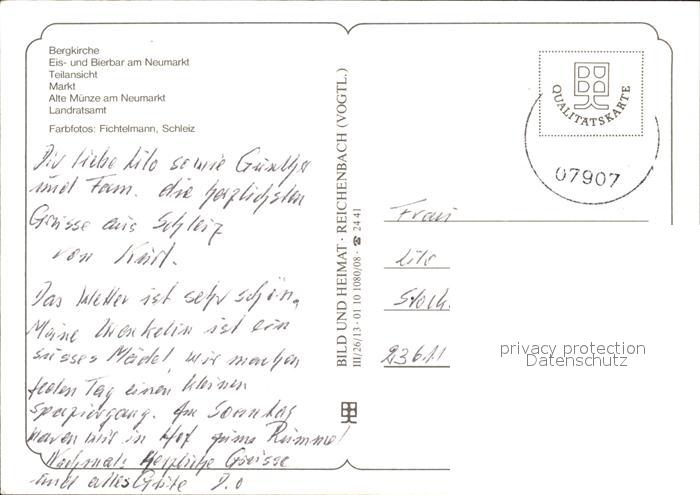 Bergkirche
Eis- und Bierbar am Neumarkt
Teilansicht
Markt
Alte Münze am Neumarkt
Landratsamt
Farbfotos: Fichtelmann, Schleiz
Dir liebe Lilo sowie Günther
und Fam. die herzlichsten
Grüsse aus Schleiz
von Kurt.
Das Wetter ist sehr schön,
Meine Urenkelin ist ein
süsses Mädel, wir machen
jeden Tag einen kleinen
Spaziergang. Am Sonntag
waren wir in Hof zum Rummel
Nochmals Herzliche Grüsse
und alles Gute D.O
BILD UND HEIMAT · REICHENBACH (VOGTL.)
III/26/13 · 01 10 1080/08 · ☎ 24 41
QUALITÄTSKARTE
07907
Frau
Lilo
23611
privacy protection
Datenschutz